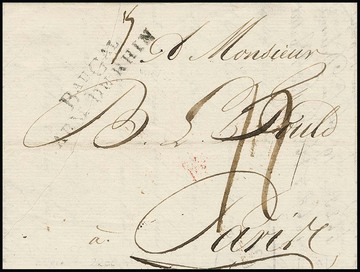 BAU GAL
ARM. DU RHIN
A Monsieur
B. L. Fould
à Paris